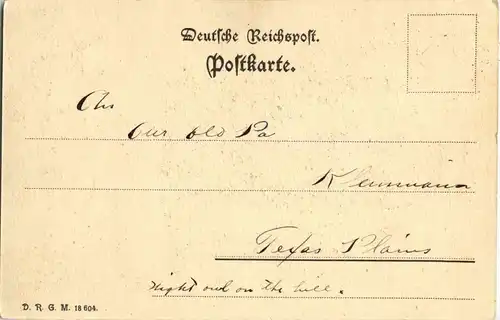 Deutsche Reichspost.
Postkarte.
An
Our Old Pa
Klenmann
Texas Plains
right out on the hill.
D. R. G. M. 18 604.